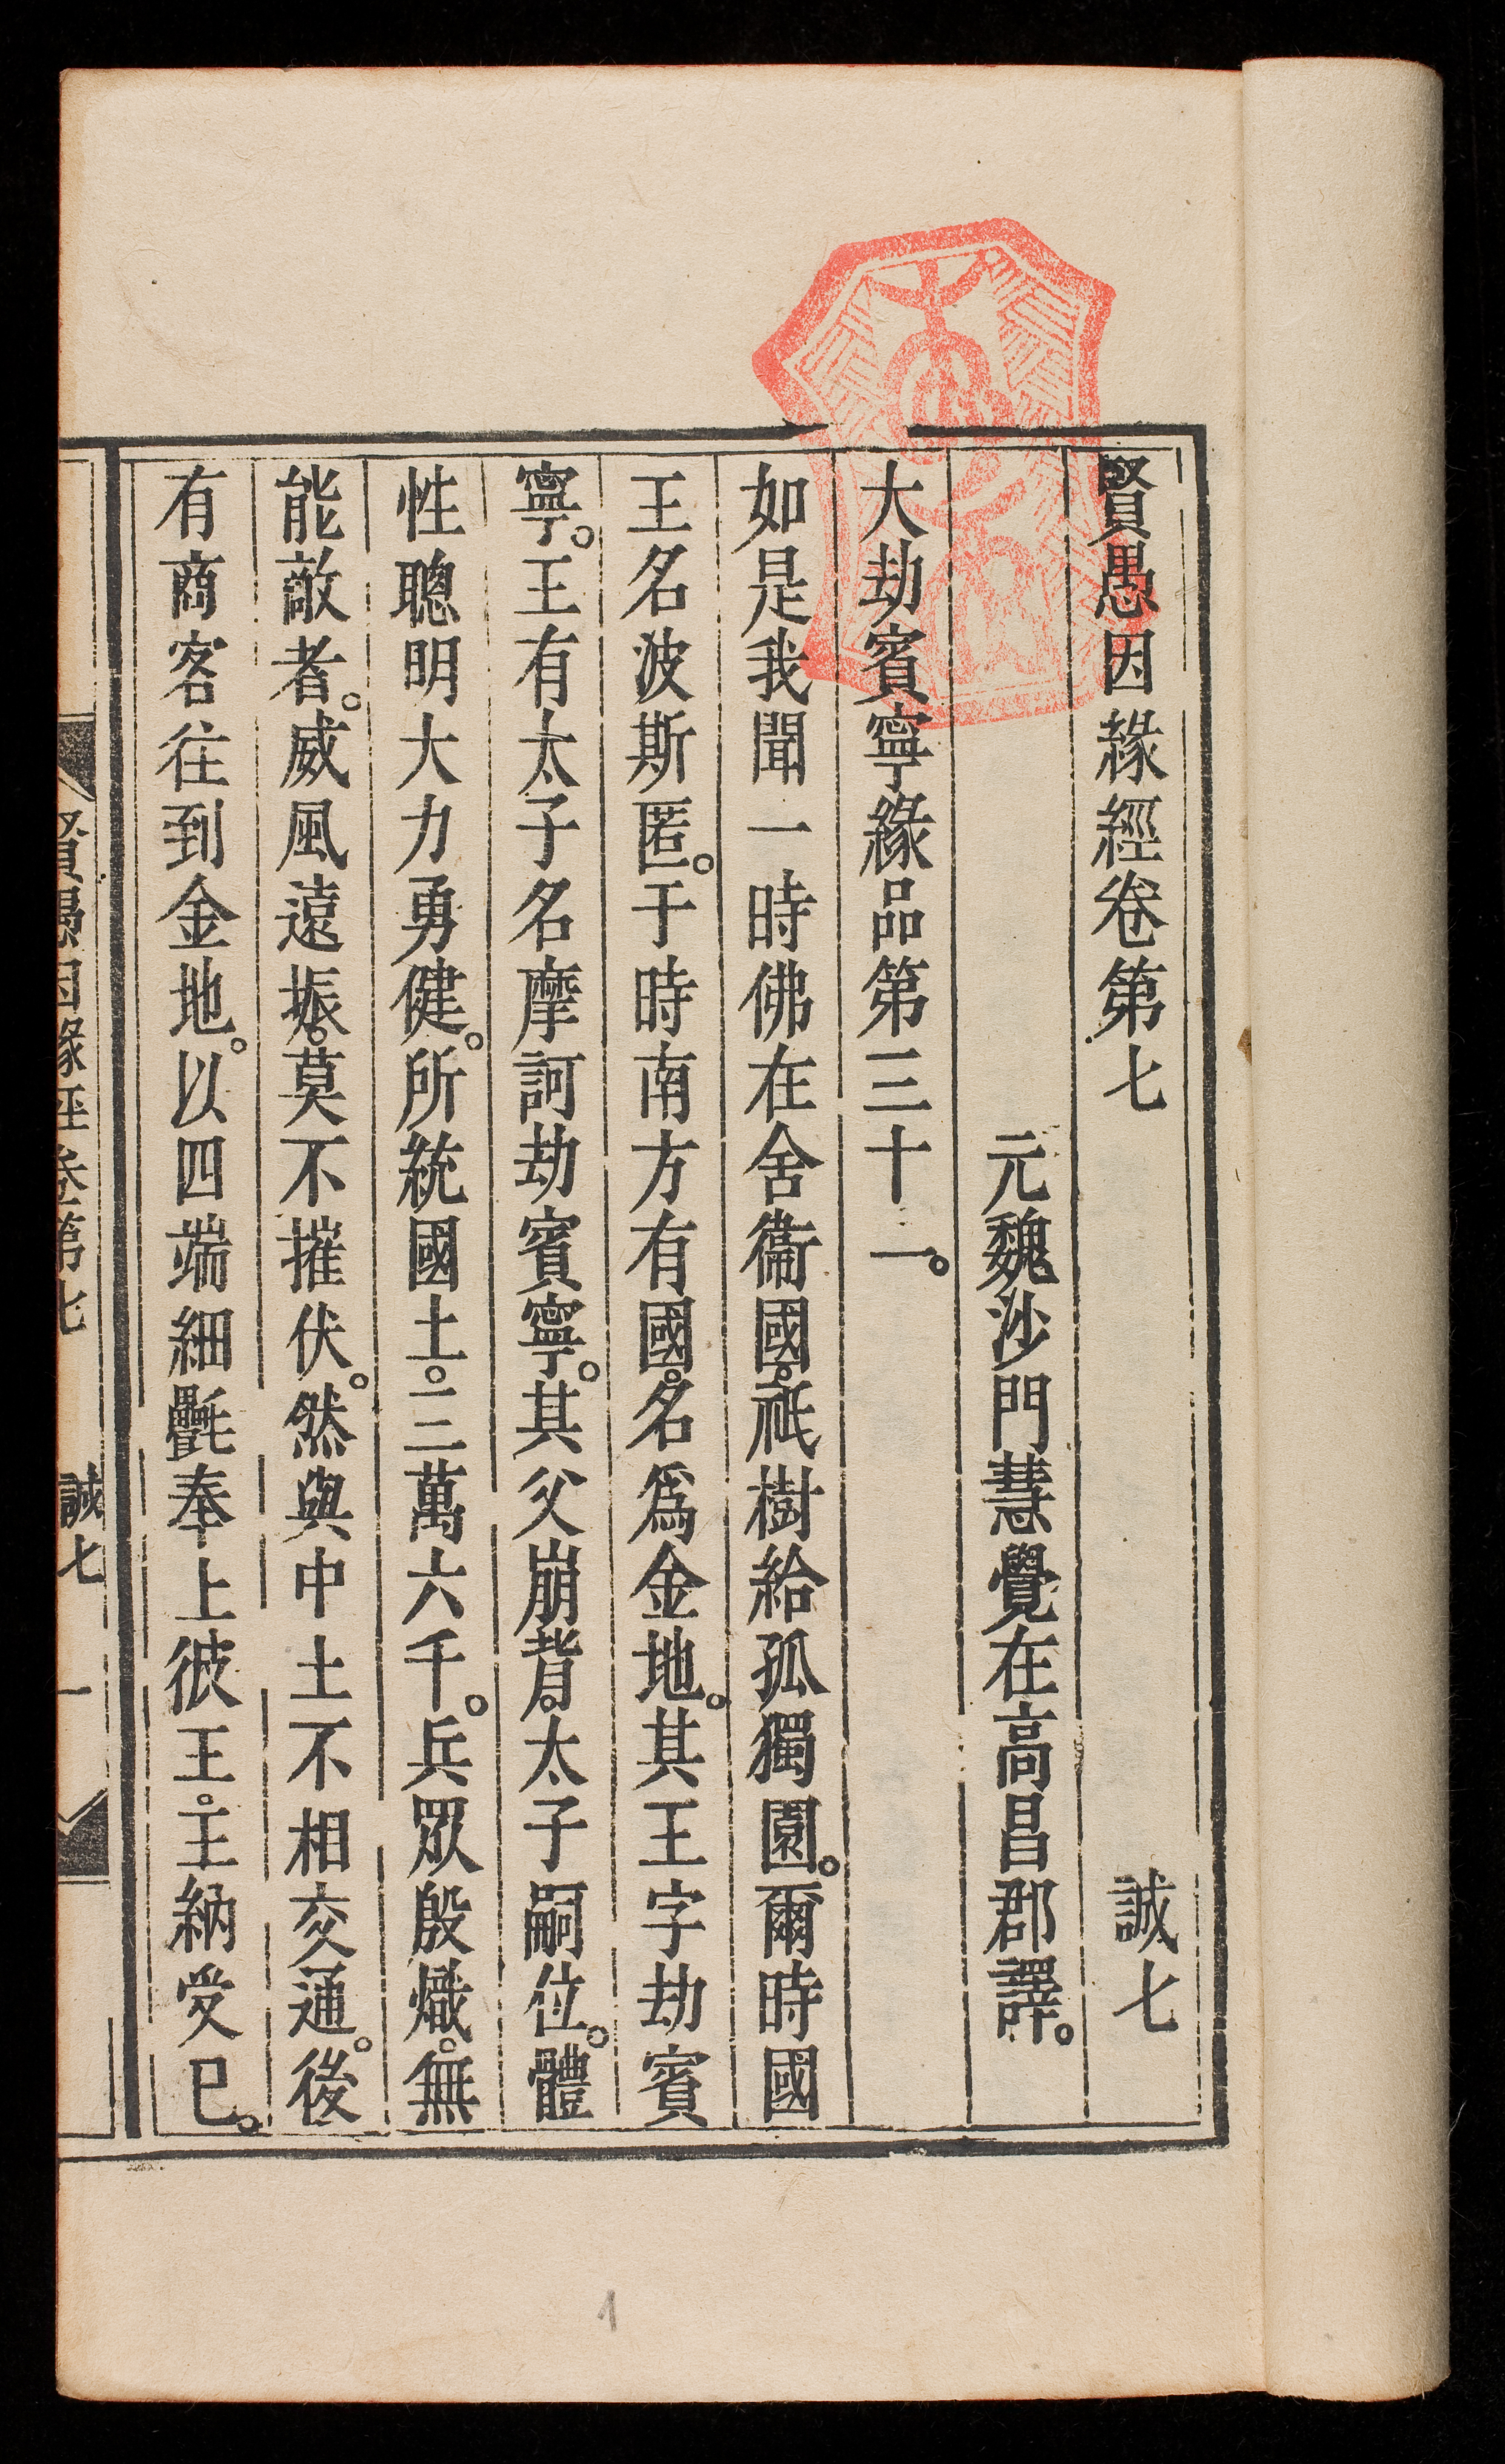 賢愚因緣經卷第七　誠七
元魏沙門慧覺在高昌郡譯。
大劫賓寧緣品第三十一。
如是我聞一時佛在舍衞國。祇樹給孤獨園。爾時國
王名波斯匿。于時南方有國。名爲金地。其王字劫賓
寧。王有太子名摩訶劫賓寧。其父崩背。太子嗣位。體
性聰明大力勇健。所統國土。三萬六千。兵眾殷熾。無
能敵者。威風遠振。莫不摧伏。然與中土不相交通。後
有商客往到金地。以四端細㲲奉上彼王。王納受已。
賢愚因緣經卷第七　誠七　一
1